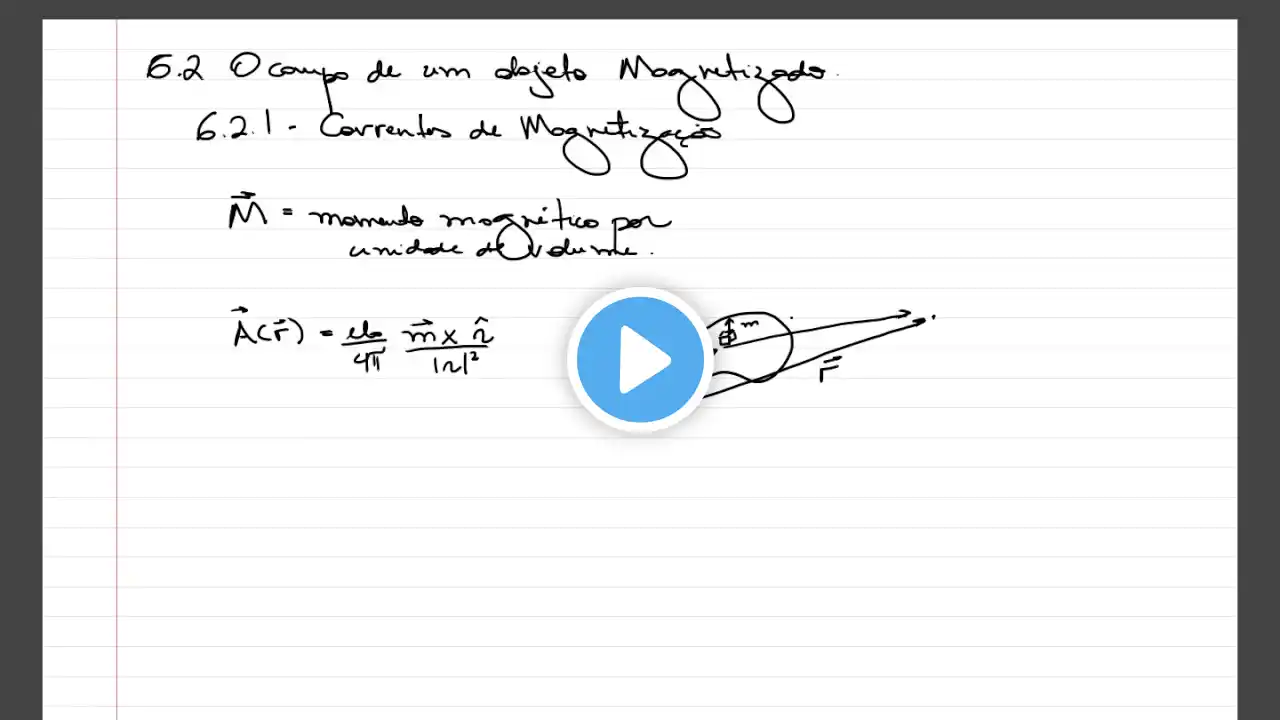 6.2 O campo de um objeto Magnetizado.
6.2.1 - Correntes de Magnetização
M⃗ = momento magnético por
unidade de volume.
A⃗(r⃗) = μ₀/4π m⃗ x r̂/|r|²
m
r⃗